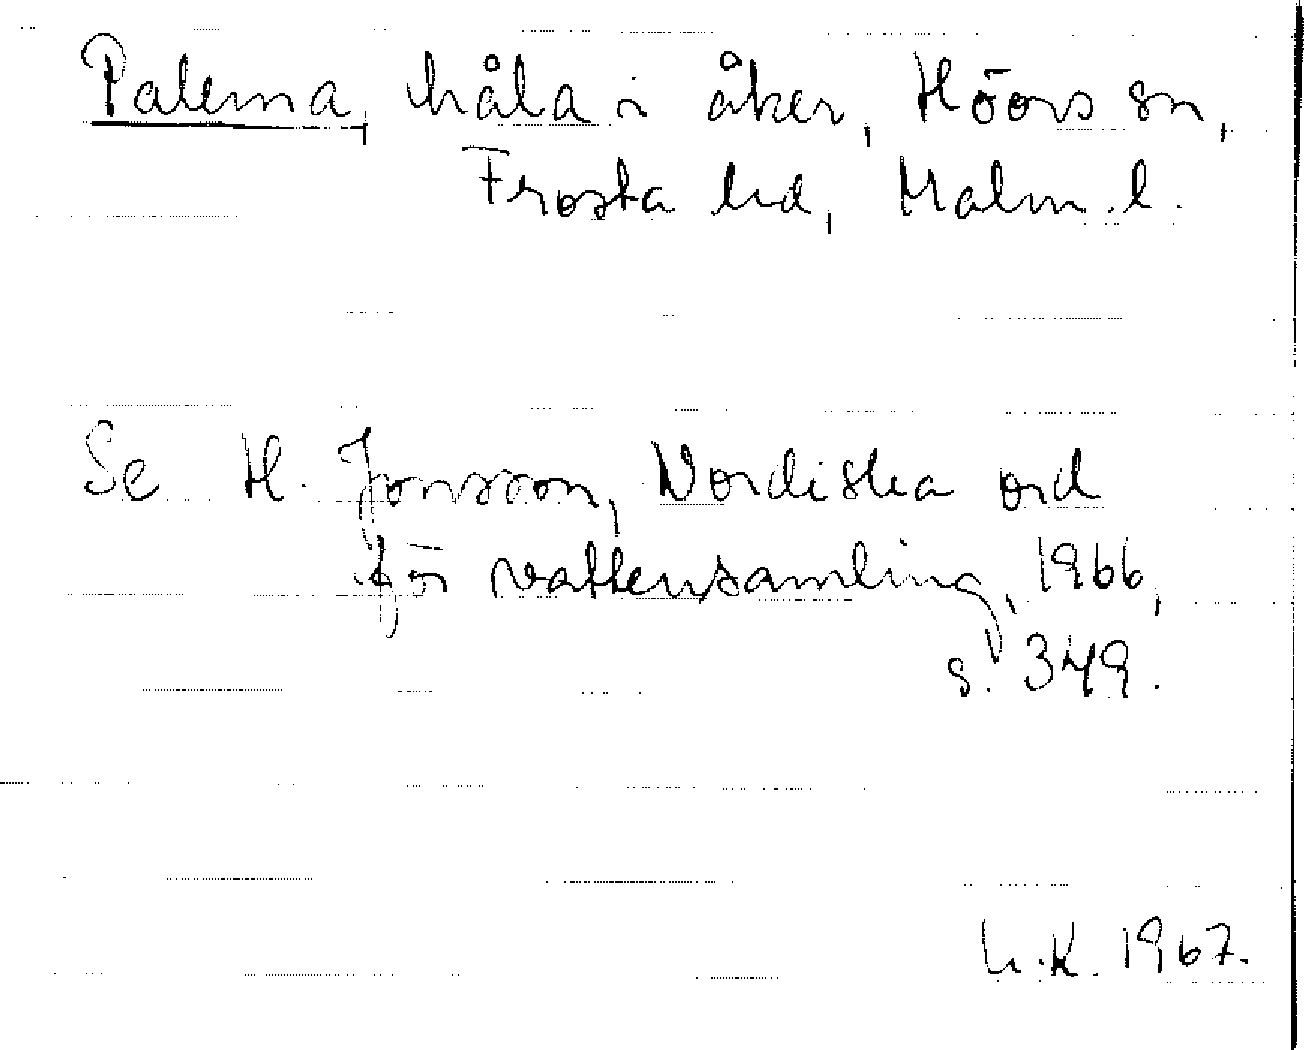 Palerna, håla i åker, Höörs sn,
Frosta hd, Malm. l.
Se H. Jonsson, Nordiska ord
för vattensamling, 1966,
s. 349.
L.K. 1967.